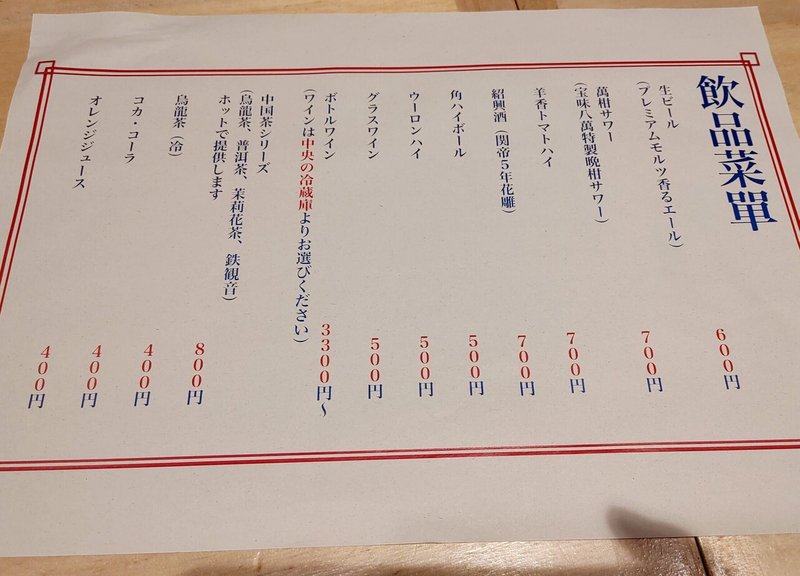 飲品菜單
生ビール
(プレミアムモルツ香るエール)
600円
萬柑サワー
(宝味八萬特製晩柑サワー)
700円
羊香トマトハイ
700円
紹興酒 (関帝5年花雕)
700円
角ハイボール
500円
ウーロンハイ
500円
グラスワイン
500円
ボトルワイン
(ワインは中央の冷蔵庫よりお選びください)
3300円〜
中国茶シリーズ
(烏龍茶、普洱茶、茉莉花茶、鉄観音)
ホットで提供します
800円
烏龍茶 (冷)
400円
コカ・コーラ
400円
オレンジジュース
400円